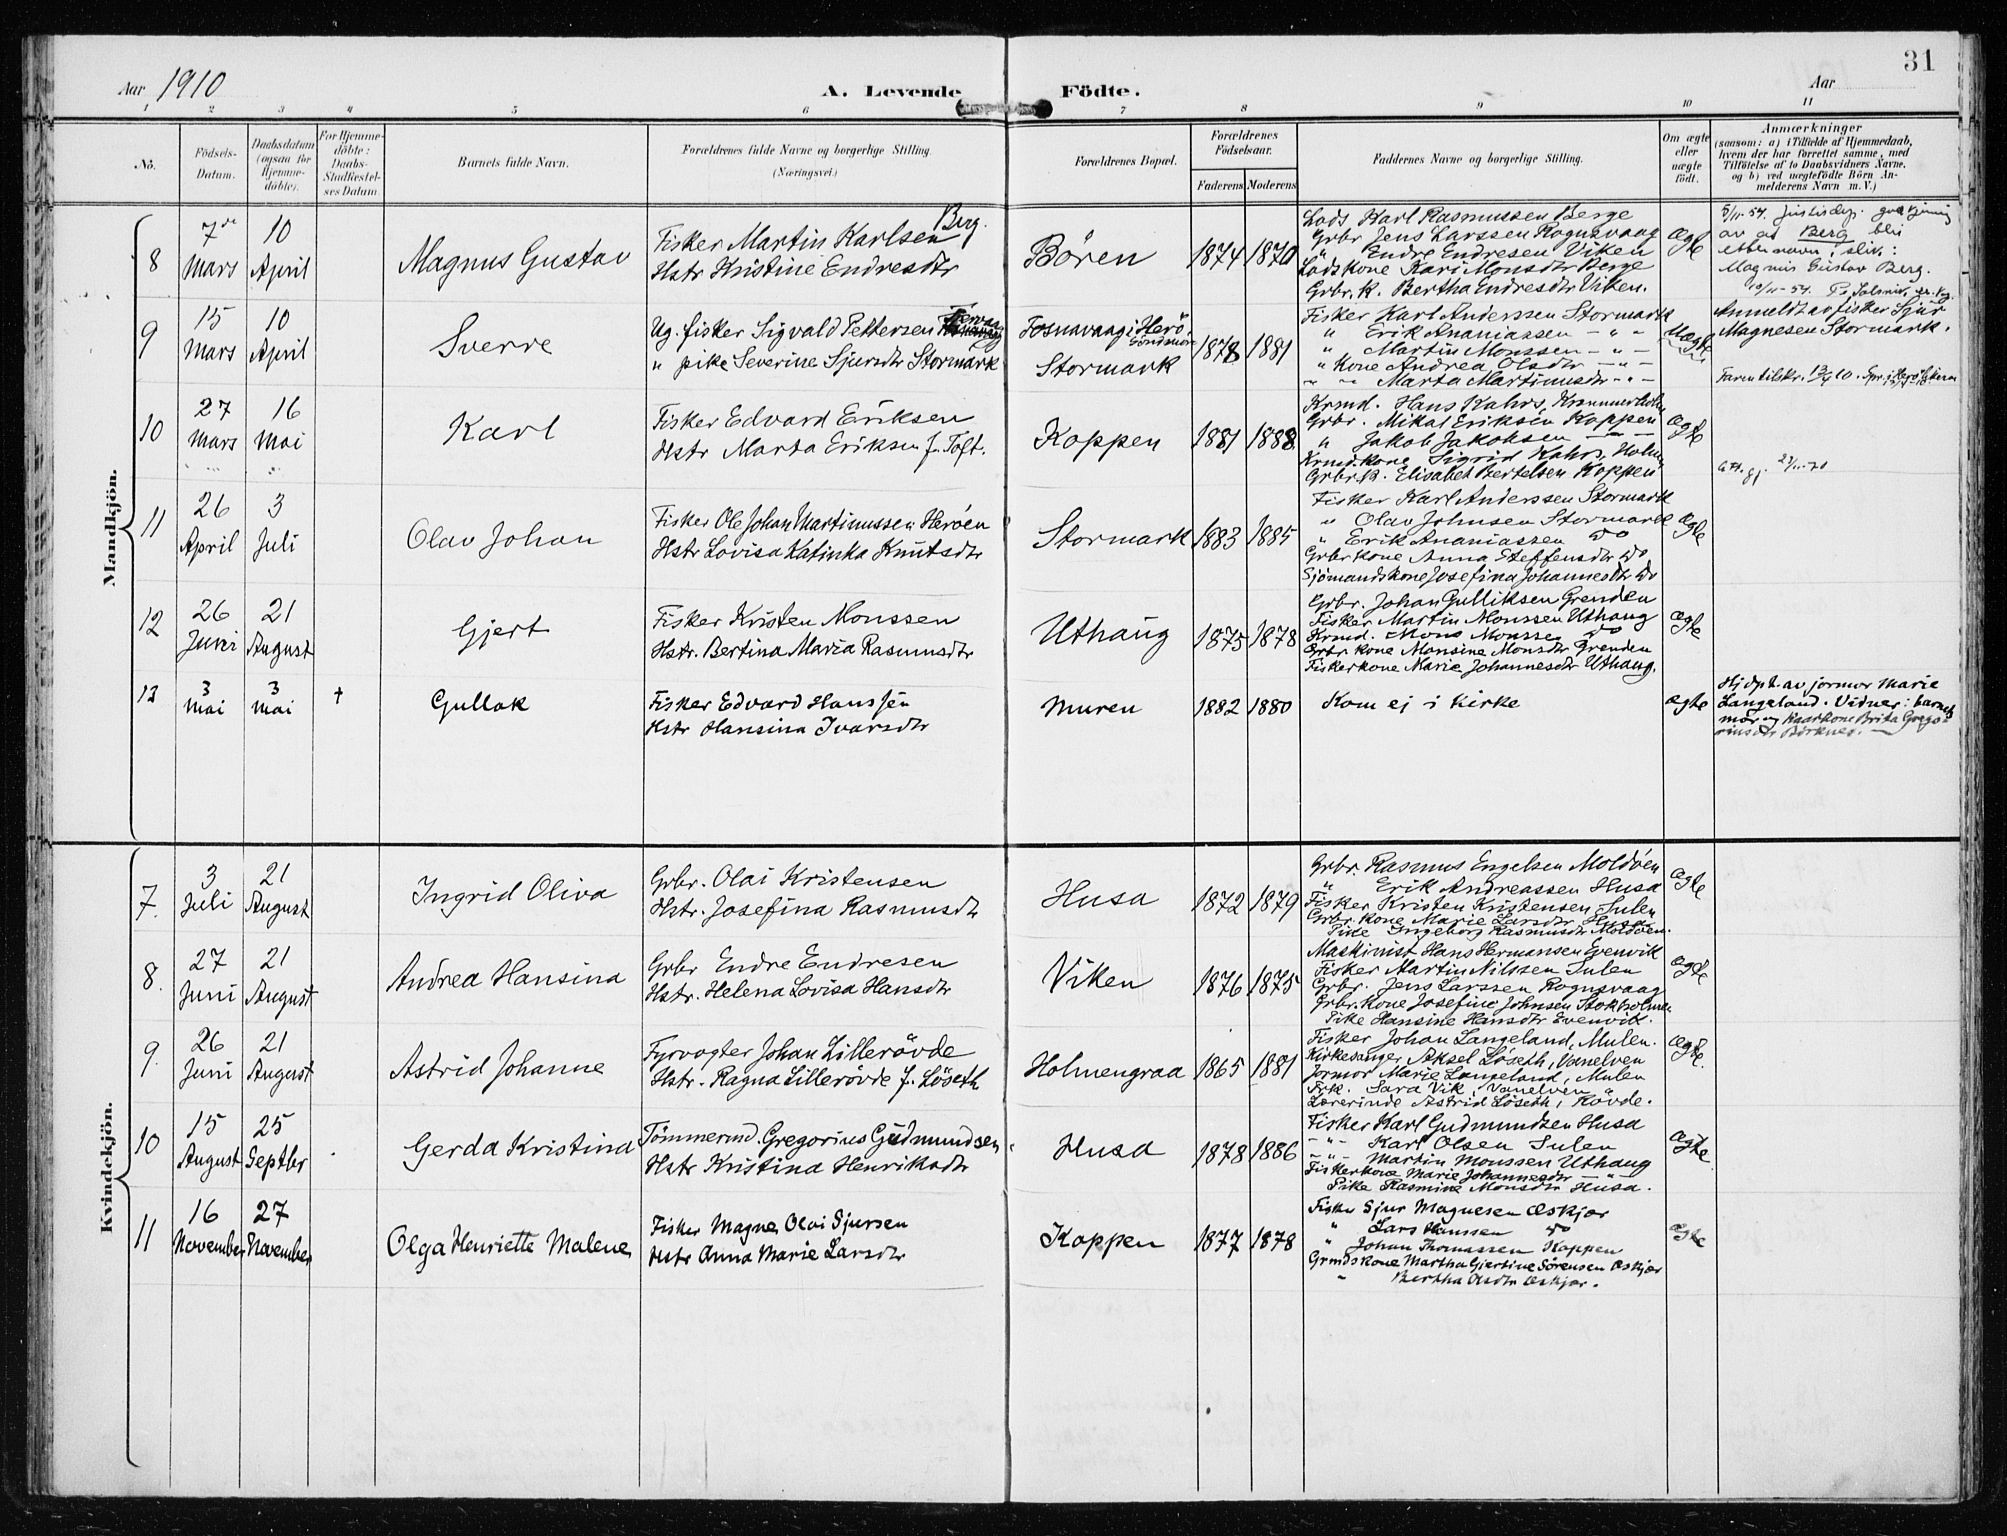 31
Aar 1910
A. Levende Födte.
Aar
1 2 3 4 5 6 7 8 9 10 11
No.
Födsels-Datum.
Daabsdatum (ogsaa for Hjemme-döbte).
For Hjemme-döbte: Daabs-Stadfæstel-ses Datum
Barnets fulde Navn.
Forældrenes fulde Navne og borgerlige Stilling. (Næringsvei.)
Forældrenes Bopæl.
Forældrenes Födselsaar.
Faderens Moderens
Faddernes Navne og borgerlige Stilling.
Om ægte eller uægte födt.
Anmærkninger
(saasom: a) i Tilfælde af Hjemmedaab,
hvem der har forrettet samme, med
Tilföielse af to Daabsvidners Navne,
og b) ved uægtefödte Börn An-
melderens Navn m. V.)
Mandkjön.
8
7de Mars
10 April
Magnus Gustav
Fisker Martin Karlsen Berg.
Hstr Kristine Endresdtr
Bören
1874 1870
Lods Karl Rasmussen Berge
Grbr. Jens Larssen Rognsvaag
" Endre Endresen Viken
Lodskone Kari Monsdtr Berge
Grbr. K. Bertha Endresdtr Viken.
Ægte
5/11-54. Justisdep. godkjenning
av at Berg blir
etternavn, slik:
Magnus Gustav Berg.
9
15 Mars
10 April
Sverre
Ug. fisker Sigvald Pettersen
" pike Severine Sjursdtr Stormark
Fosnavaag i Herö, Söndmör
Stormark
1878 1881
Fisker Karl Anderssen Stormark
" Erik Ananiassen - " -
" Martin Monssen - " -
" Kone Andrea Olsdtr - " -
" - Marta Martinusdtr - " -
Uægte
Anmeldt av fisker Sjur
Magnesen Stormark.
10
27 Mars
16 Mai
Karl
Fisker Edvard Eriksen
Hstr Marta Eriksen f. Toft.
Koppen
1881 1888
Krmd. Hans Kahrs,
Grbr. Mikal Eriksen Koppen
" Jakob Jakobsen - " -
Krmd.kone Sigrid Kahrs, Holmen
Grbr.k. Elisabet Bertelsen Koppen
Ægte
11
26 April
3 Juli
Olav Johan
Fisker Ole Johan Martinussen Heröen
Hstr Lovisa Katinka Knutsdtr
Stormark
1883 1885
Fisker Karl Anderssen Stormark
" Olav Johnsen Stormark
" Erik Ananiassen do
Grbr kone Anna Steffensdtr do
Sjömandskone Josefina Johannesdtr do
Ægte
12
26 Juni
21 August
Gjert
Fisker Kristen Monssen
Hstr. Bertina Maria Rasmusdtr
Uthaug
1875 1878
Grbr. Johan Gulliksen Grenden
Fisker Martin Monssen Uthaug
Krmd. Mons Monssen do
Grbr kone Monsine Monsdtr Grenden
Fiskerkone Marie Johannesdtr Uthaug.
Ægte
13
3 Mai
3 Mai
+
Gullak
Fisker Edvard Hanssen
Hstr Hansina Ivarsdtr
Muren
1882 1880
Kom ej i Kirke
Ægte
Hjdpt. av jormor Marie
Langeland. Vidner: barnets
mor og Kaarkone Brita Grego-
riusdtr Börknes.
Kvindekjön.
7.
3 Juli
21 August
Ingrid Oliva
Grbr. Olai Kristensen
Hstr. Josefina Rasmusdtr
Husa
1872 1879
Grbr. Rasmus Engelsen Moldöen
" Erik Andreassen Husa
Fisker Kristen Kristensen, Sulen
Grbr. kone Marie Larsdtr Husa
Pike Ingeborg Rasmusdtr Moldöen.
Ægte
8.
27 Juni
21 August
Andrea Hansina
Grbr Endre Endresen
Hstr. Helena Lovisa Hansdtr
Viken
1876 1875
Maskinist Hans Hermansen Evenvik
Fisker Martin Nilssen Sulen
Grbr. Jens Larssen Rognsvaag
Grbr. kone Josefine Johnsen Stokholmen
Pike Hansine Hansdtr Evenvik.
Ægte
9.
26 Juni
21 August
Astrid Johanne
Fyrvogter Johan Lillerövde
Hstr. Ragna Lillerövde f. Löseth
Holmengraa
1865 1881
Fisker Johan Langeland, Mulen.
Kirkesanger Aksel Löseth, Vanelven
Jormor Marie Langeland, Mulen
Frk. Sara Vik, Vanelven
Lærerinde Astrid Löseth, Rövde.
Ægte.
10
15 August
25 Septbr
Gerda Kristina
Tömmermd. Gregorius Gudmundsen
Hstr Kristina Henriksdtr
Husa
1878 1886
Fisker Karl Gudmundsen Husa
- " - Karl Olsen Sulen
- " - Martin Monssen Uthaug
Fiskerkone Marie Johannesdtr - " -
Pike Rasmine Monsdtr Husa.
Ægte
11
16 November
27 November
Olga Henriette Malene
Fisker Magne Olai Sjursen
Hstr Anna Marie Larsdtr
Koppen
1877 1878
Fisker Sjur Magnesen Æskjær
" Lars Hanssen do
" Johan Thomassen Koppen
Grmdskone Martha Gjertine Sörensen Æskjær
" Bertha Olsdtr Æskjær.
Ægte